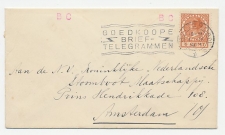 BC BC
GOEDKOOPE
BRIEF-
TELEGRAMMEN
Aan de N.V. Koninklijke Nederlandsche
Stoomboot Maatschappij
Prins Hendrikkade
Amsterdam